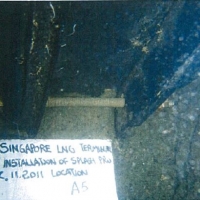 SINGAPORE LNG TERMINAL
INSTALLATION OF SPLASH PRO
11.2011 LOCATION
A5